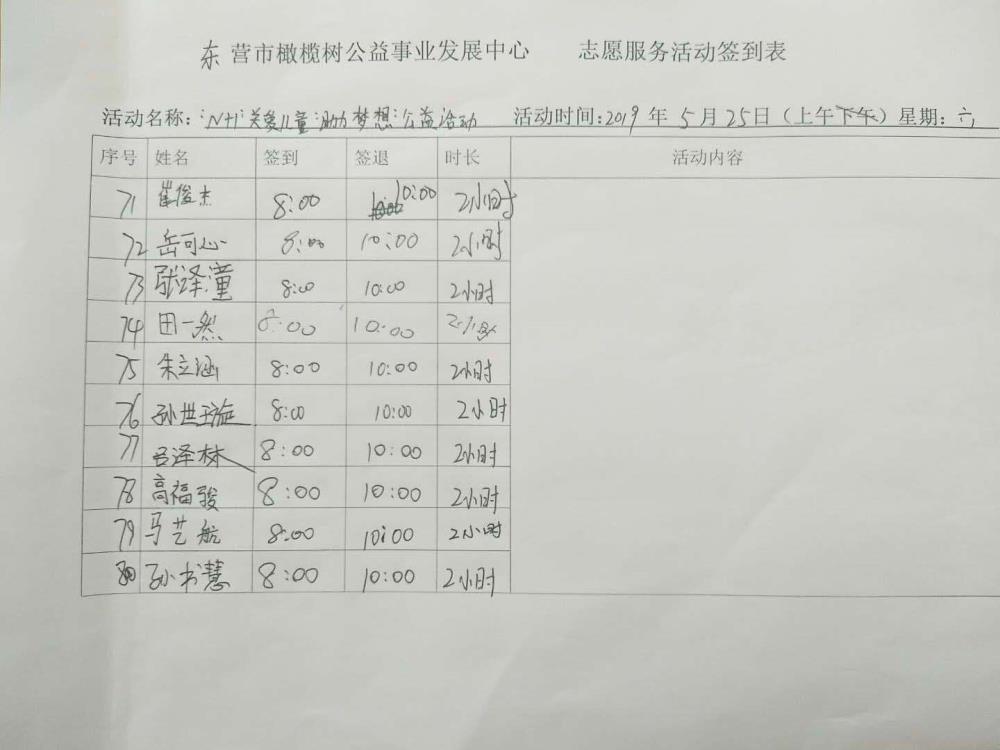 东营市橄榄树公益事业发展中心 志愿服务活动签到表
活动名称："N+1"关爱儿童"助力梦想"公益活动 活动时间:2019年5月25日（上午下午）星期：六
序号 姓名 签到 签退 时长 活动内容
71 崔俊杰 8:00 10:00 2小时
72 岳可心 8:00 10:00 2小时
73 张泽潼 8:00 10:00 2小时
74 田一然 8:00 10:00 2小时
75 朱立涵 8:00 10:00 2小时
76 孙世璇 8:00 10:00 2小时
77 吕泽林 8:00 10:00 2小时
78 高福骏 8:00 10:00 2小时
79 马艺航 8:00 10:00 2小时
80 孙书慧 8:00 10:00 2小时